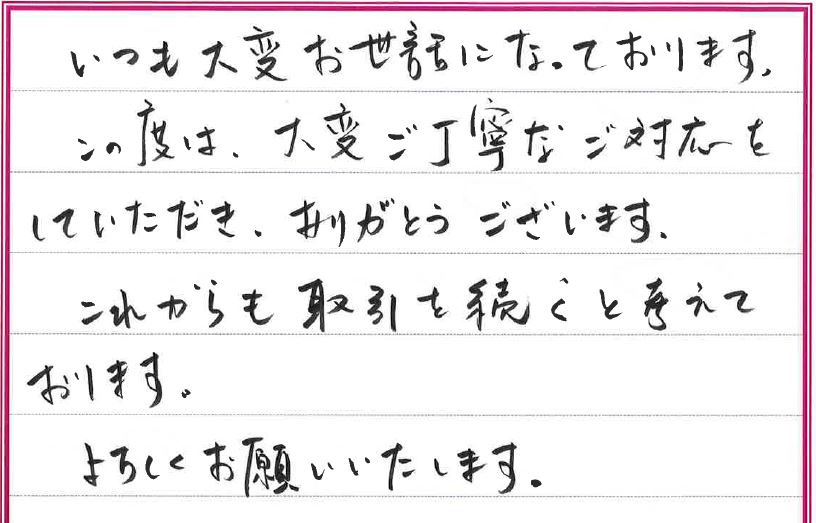 いつも大変お世話になっております。
この度は、大変ご丁寧なご対応を
していただき、ありがとうございます。
これからも取引を続くと考えて
おります。
よろしくお願いいたします。